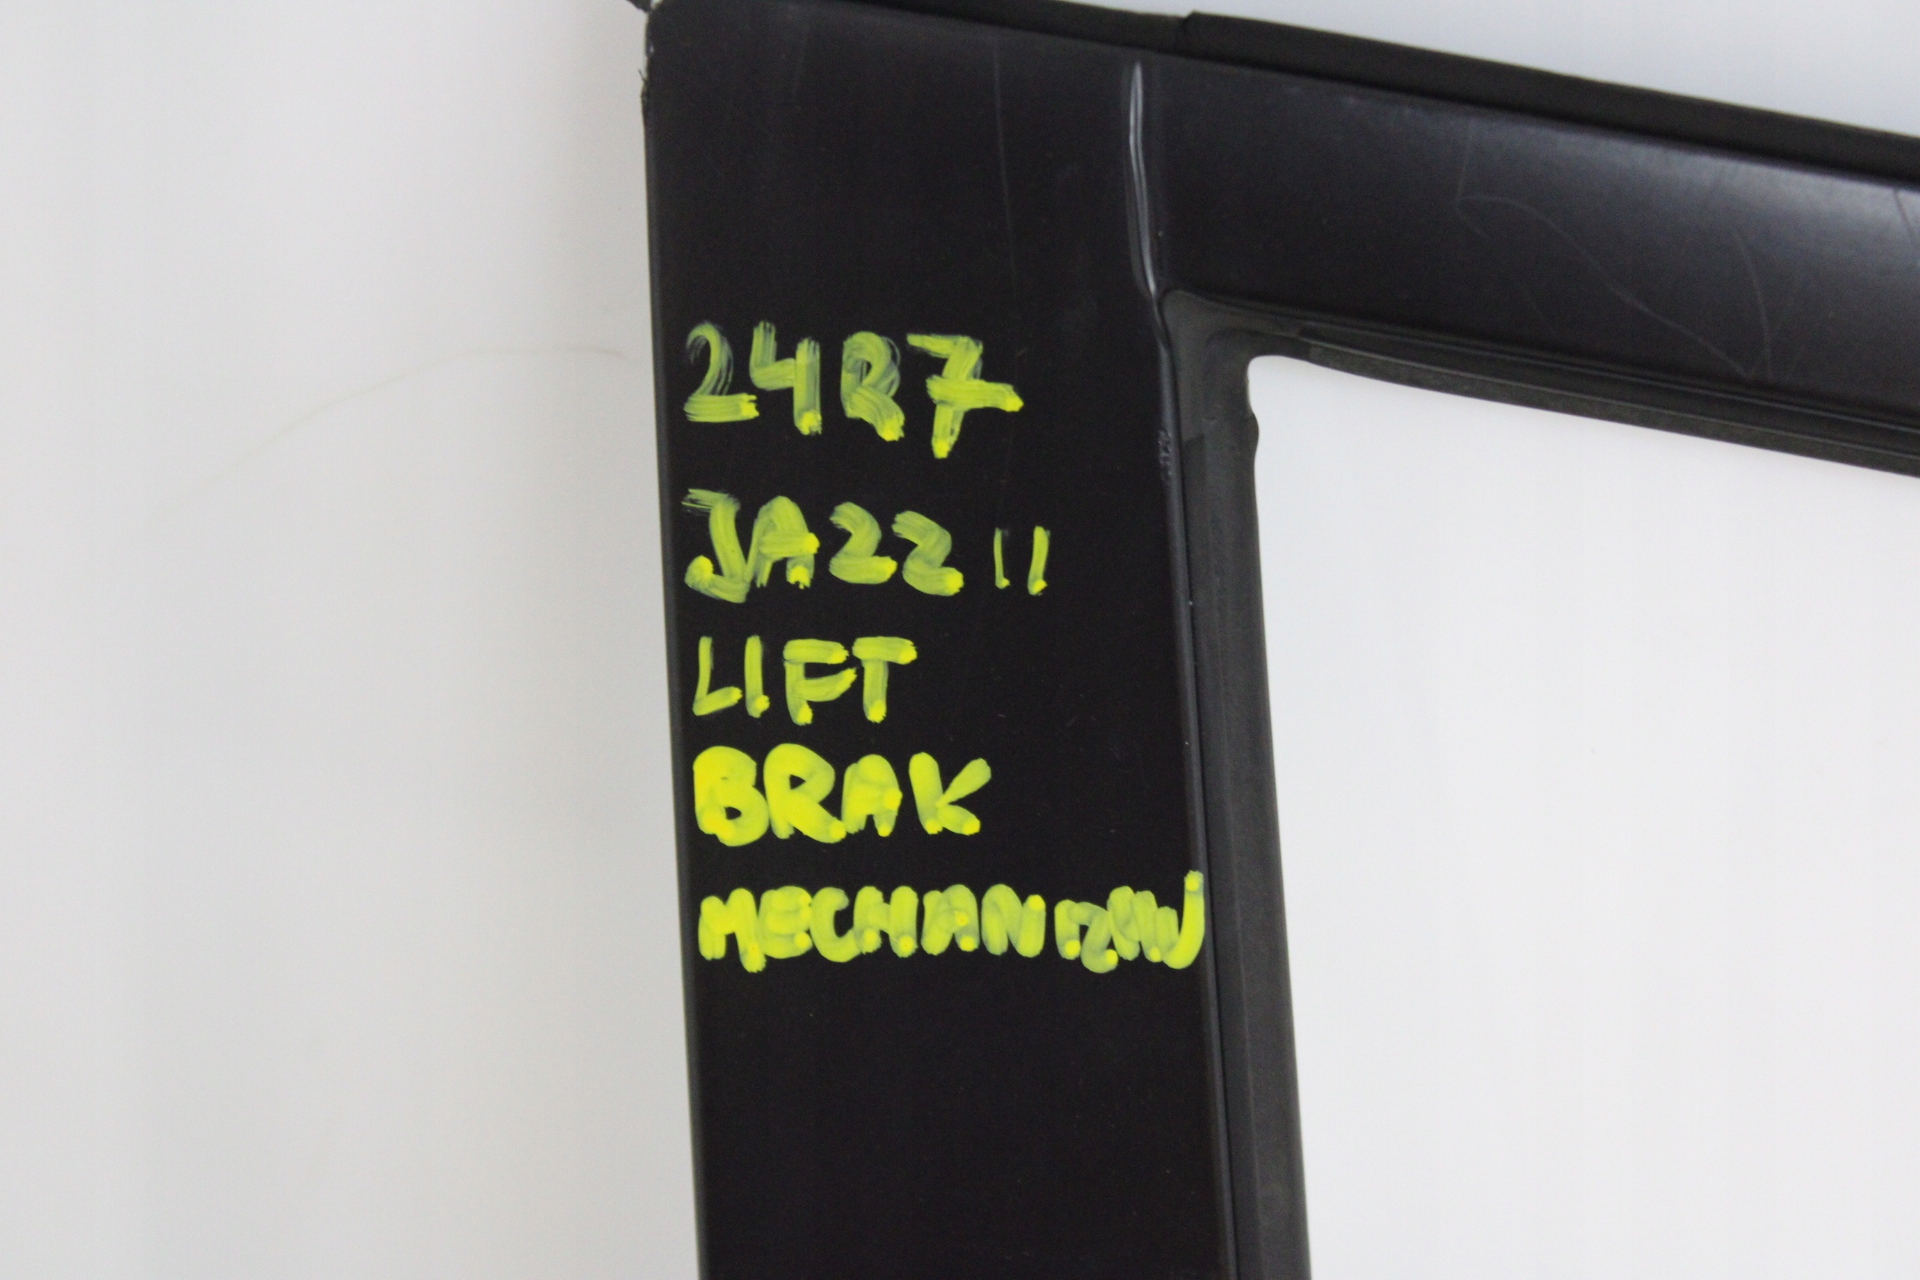 24R7
JAZZ II
LIFT
BRAK
MECHANIZMU